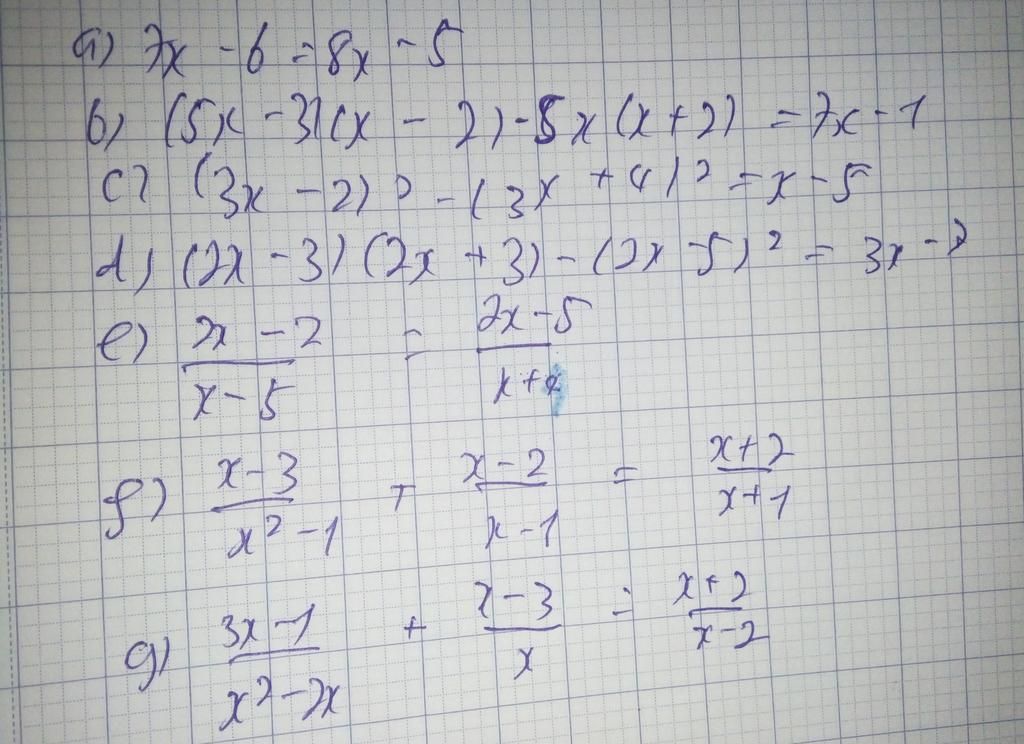 a) 7x - 6 = 8x - 5
b) (5x - 3)(x - 2) - 5x(x + 2) = 7x - 1
c) (3x - 2)² - (3x + 4)² = x - 5
d) (2x - 3)(2x + 3) - (2x - 5)² = 3x -
e) \frac{2x - 2}{x - 5} = \frac{2x - 5}{x +}
f) \frac{x - 3}{x² - 1} + \frac{x - 2}{x - 1} = \frac{x + 2}{x + 1}
g) \frac{3x - 1}{x² - 2x} + \frac{x - 3}{x} = \frac{x + 2}{x - 2}